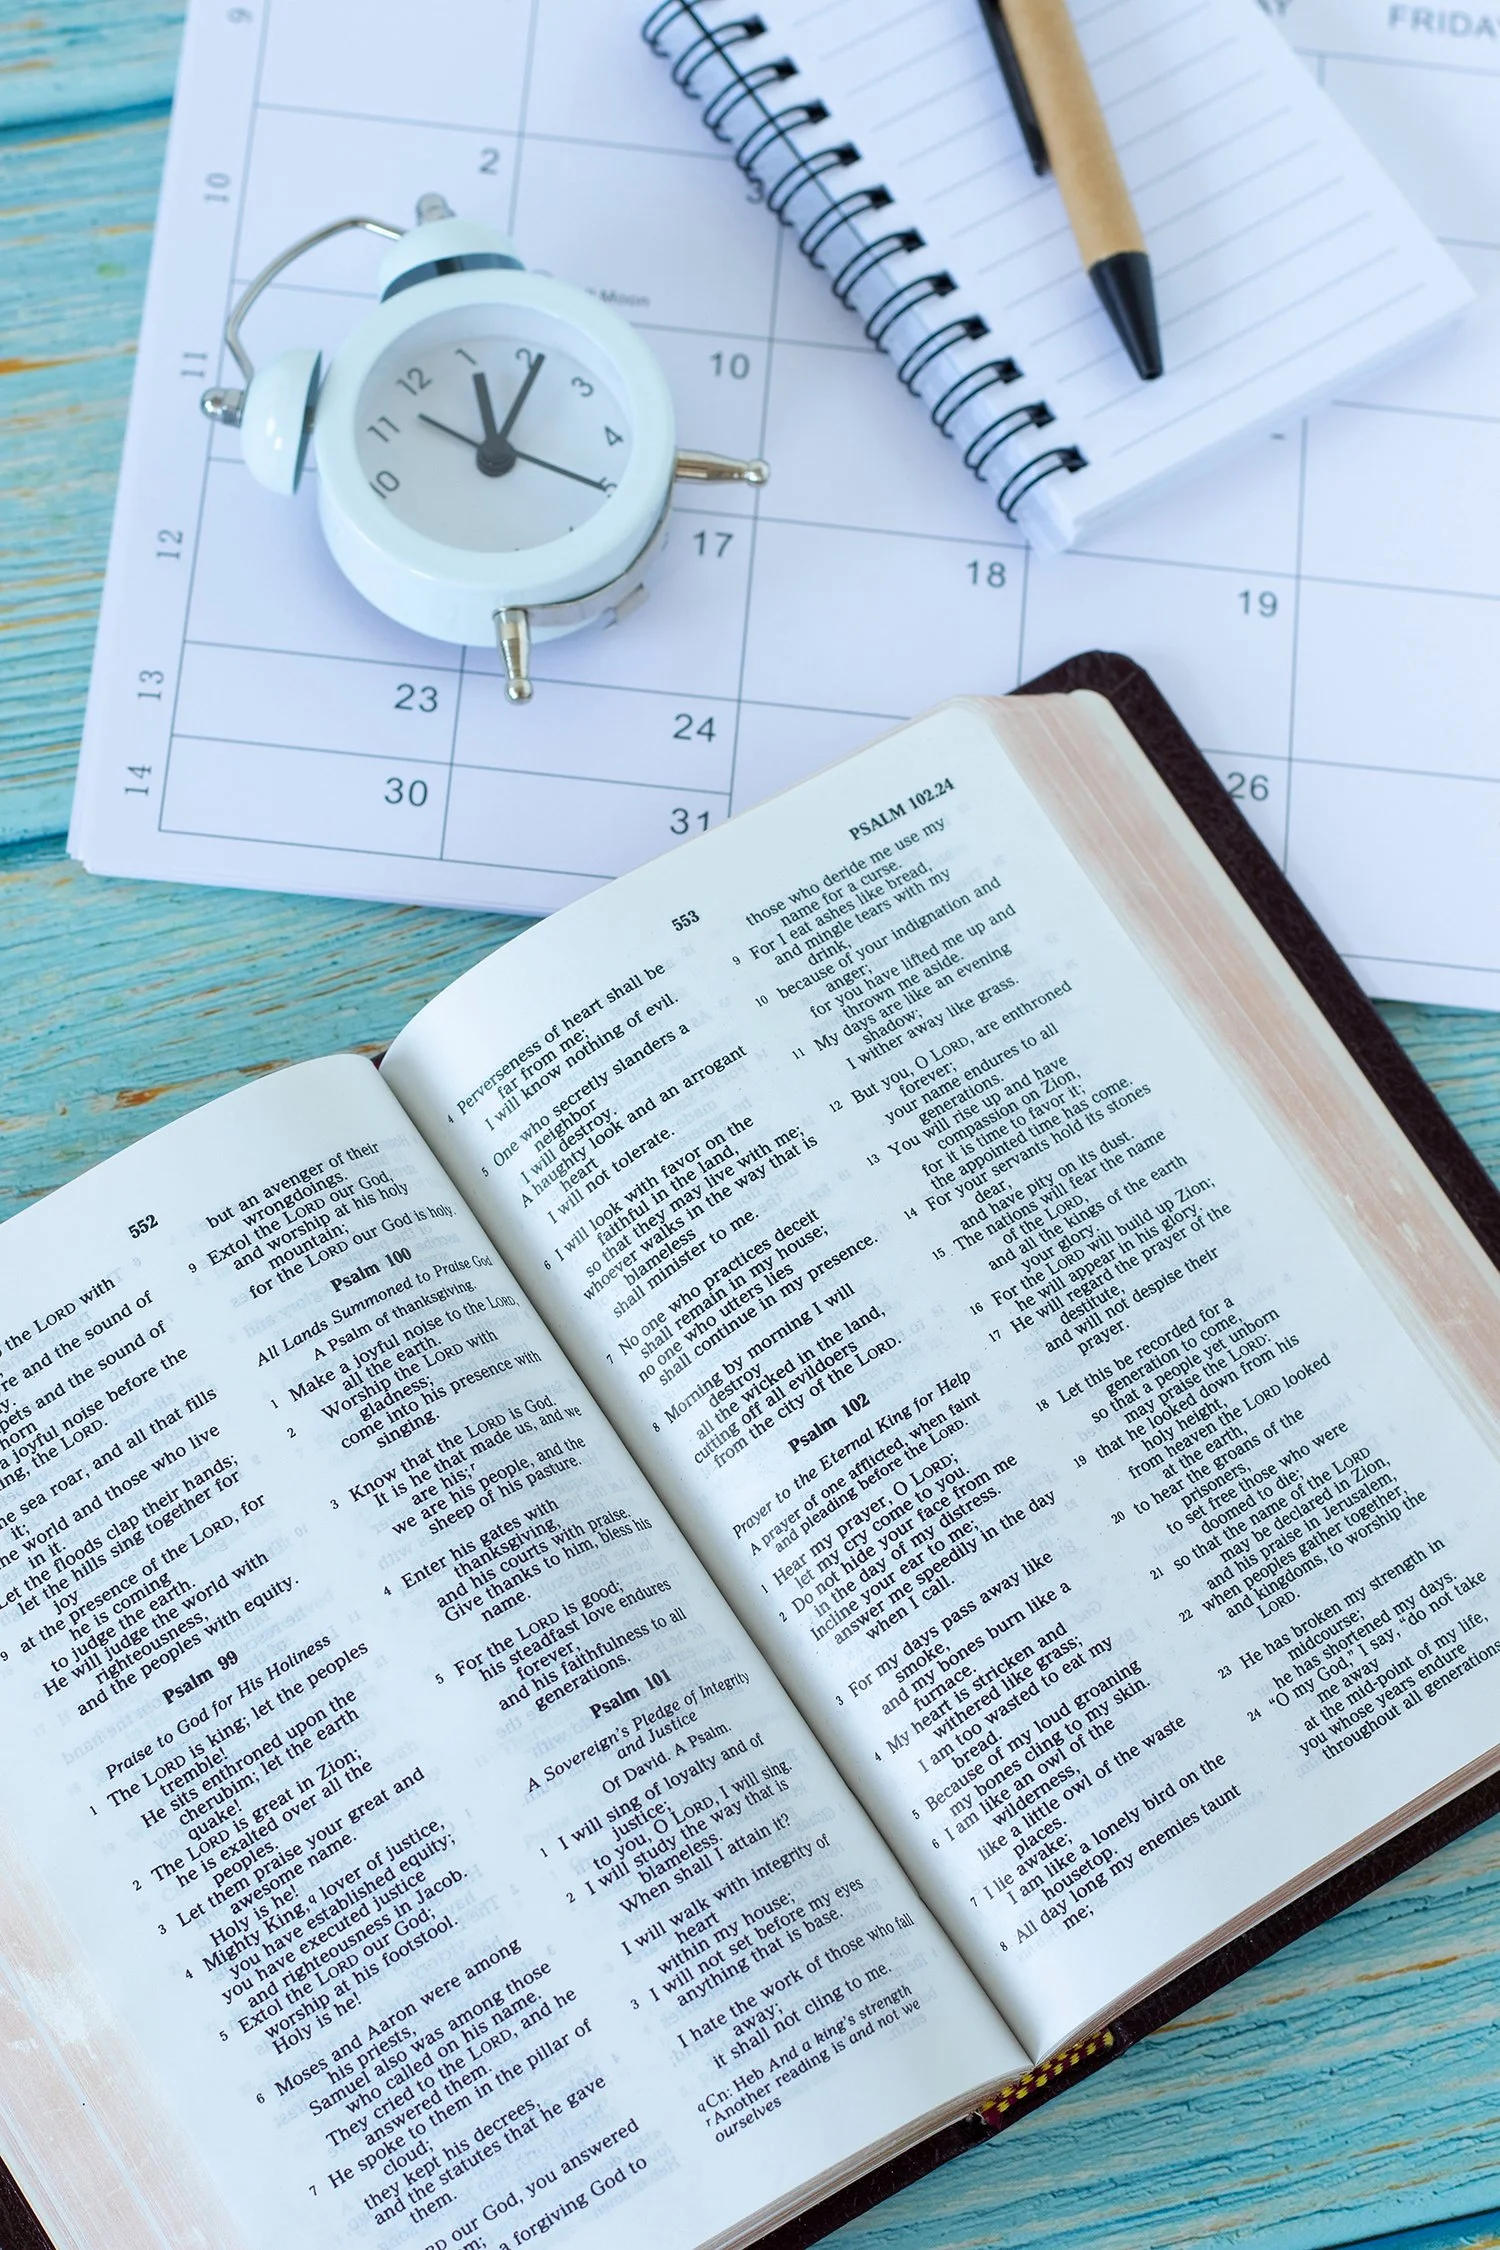 9
10
11
12
13
14
2
Moon
10
17
18
19
23
24
26
30
31
FRIDA
12
1
2
3
4
5
10
11
552
the LORD with
re and the sound of
pets and the sound of
horn
a joyful noise before the
ing, the LORD.
he sea roar, and all that fills
it;
he world and those who live
in it.
Let the floods clap their hands;
let the hills sing together for
joy
9 at the presence of the LORD, for
he is coming
to judge the earth.
He will judge the world with
righteousness,
and the peoples with equity.
Psalm 99
Praise to God for His Holiness
1 The LORD is king; let the peoples
tremble!
He sits enthroned upon the
cherubim; let the earth
quake!
2 The LORD is great in Zion;
he is exalted over all the
peoples.
3 Let them praise your great and
awesome name.
Holy is he!
4 Mighty King,q lover of justice,
you have established equity;
you have executed justice
and righteousness in Jacob.
5 Extol the LORD our God;
worship at his footstool.
Holy is he!
6 Moses and Aaron were among
his priests,
Samuel also was among those
who called on his name.
They cried to the LORD, and he
answered them.
7 He spoke to them in the pillar of
cloud;
they kept his decrees,
and the statutes that he gave
them.
RD our God, you answered
m;
a forgiving God to
but an avenger of their
wrongdoings.
9 Extol the LORD our God,
and worship at his holy
mountain;
for the LORD our God is holy.
Psalm 100
All Lands Summoned to Praise God
A Psalm of thanksgiving.
1 Make a joyful noise to the LORD,
all the earth.
2 Worship the LORD with
gladness;
come into his presence with
singing.
3 Know that the LORD is God.
It is he that made us, and we
are his;r
we are his people, and the
sheep of his pasture.
4 Enter his gates with
thanksgiving,
and his courts with praise.
Give thanks to him, bless his
name.
5 For the LORD is good;
his steadfast love endures
forever,
and his faithfulness to all
generations.
Psalm 101
A Sovereign's Pledge of Integrity
and Justice
Of David. A Psalm.
1 I will sing of loyalty and of
justice;
to you, O LORD, I will sing.
2 I will study the way that is
blameless.
When shall I attain it?
I will walk with integrity of
heart
within my house;
3 I will not set before my eyes
anything that is base.
I hate the work of those who fall
away;
it shall not cling to me.
q Cn: Heb And a king's strength
r Another reading is and not we
ourselves
553
PSALM 102.24
4 Perverseness of heart shall be
far from me;
I will know nothing of evil.
5 One who secretly slanders a
neighbor
I will destroy.
A haughty look and an arrogant
heart
I will not tolerate.
6 I will look with favor on the
faithful in the land,
so that they may live with me;
whoever walks in the way that is
blameless
shall minister to me.
7 No one who practices deceit
shall remain in my house;
no one who utters lies
shall continue in my presence.
8 Morning by morning I will
destroy
all the wicked in the land,
cutting off all evildoers
from the city of the LORD.
Psalm 102
Prayer to the Eternal King for Help
A prayer of one afflicted, when faint
and pleading before the LORD.
1 Hear my prayer, O LORD;
let my cry come to you.
2 Do not hide your face from me
in the day of my distress.
Incline your ear to me;
answer me speedily in the day
when I call.
3 For my days pass away like
smoke,
and my bones burn like a
furnace.
4 My heart is stricken and
withered like grass;
I am too wasted to eat my
bread.
5 Because of my loud groaning
my bones cling to my skin.
6 I am like an owl of the
wilderness,
like a little owl of the waste
places.
7 I lie awake;
I am like a lonely bird on the
housetop.
8 All day long my enemies taunt
me;
those who deride me use my
name for a curse.
9 For I eat ashes like bread,
and mingle tears with my
drink,
10 because of your indignation and
anger;
for you have lifted me up and
thrown me aside.
11 My days are like an evening
shadow;
I wither away like grass.
12 But you, O LORD, are enthroned
forever;
your name endures to all
generations.
13 You will rise up and have
compassion on Zion,
for it is time to favor it;
the appointed time has come.
14 For your servants hold its stones
dear,
and have pity on its dust.
15 The nations will fear the name
of the LORD,
and all the kings of the earth
your glory.
16 For the LORD will build up Zion;
he will appear in his glory.
17 He will regard the prayer of the
destitute,
and will not despise their
prayer.
18 Let this be recorded for a
generation to come,
so that a people yet unborn
may praise the LORD:
19 that he looked down from his
holy height,
from heaven the LORD looked
at the earth,
20 to hear the groans of the
prisoners,
to set free those who were
doomed to die;
21 so that the name of the LORD
may be declared in Zion,
and his praise in Jerusalem,
22 when peoples gather together,
and kingdoms, to worship the
LORD.
23 He has broken my strength in
midcourse;
he has shortened my days.
24 "O my God," I say, "do not take
me away
at the mid-point of my life,
you whose years endure
throughout all generations